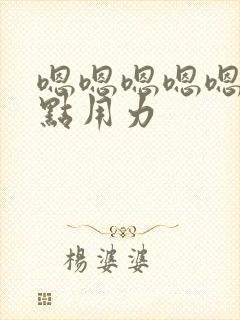 嗯嗯嗯嗯嗯
點用力
楊婆婆